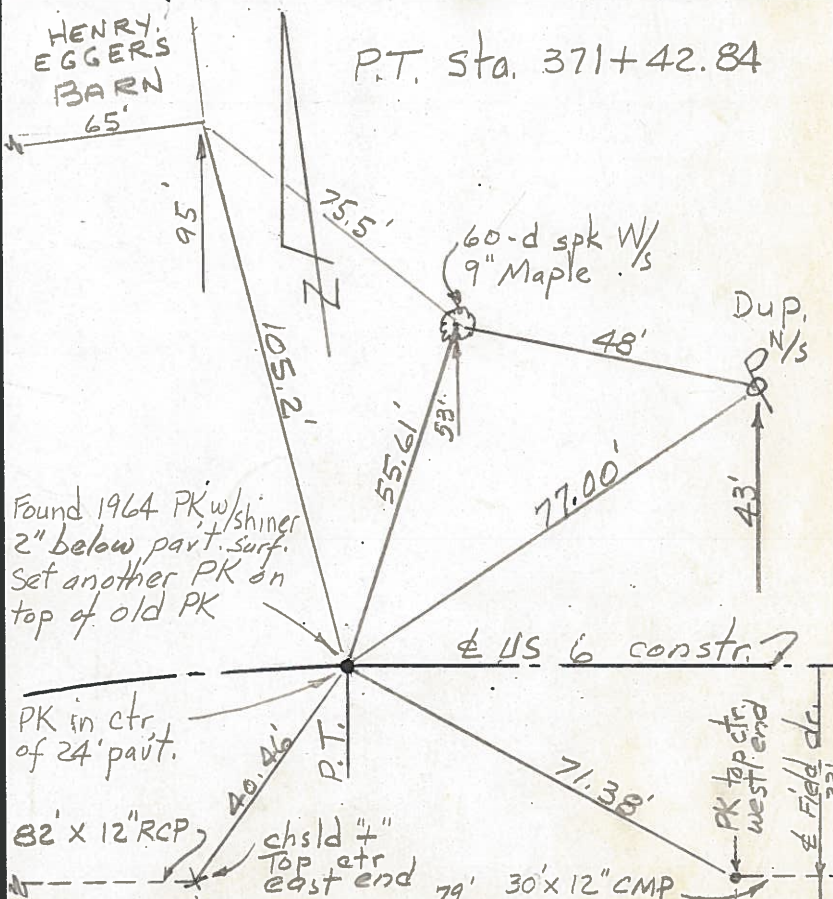 HENRY.
EGGERS
BARN
65'
P.T. Sta. 371+42.84
95'
75.5'
60-d spk W/s
9" Maple
Dup.
N/s
48'
105.2'
55.61'
53'
77.00'
43'
Found 1964 PK w/shiner
2" below pav't. surf.
Set another PK on
top of old PK
℄ US 6 constr.
PK in ctr
of 24' pav't.
P.T.
40.46'
71.38'
PK top ctr.
westl end
℄ Field dr.
82' X 12" RCP
chsld "+"
Top ctr
east end
79'
30' x 12" CMP